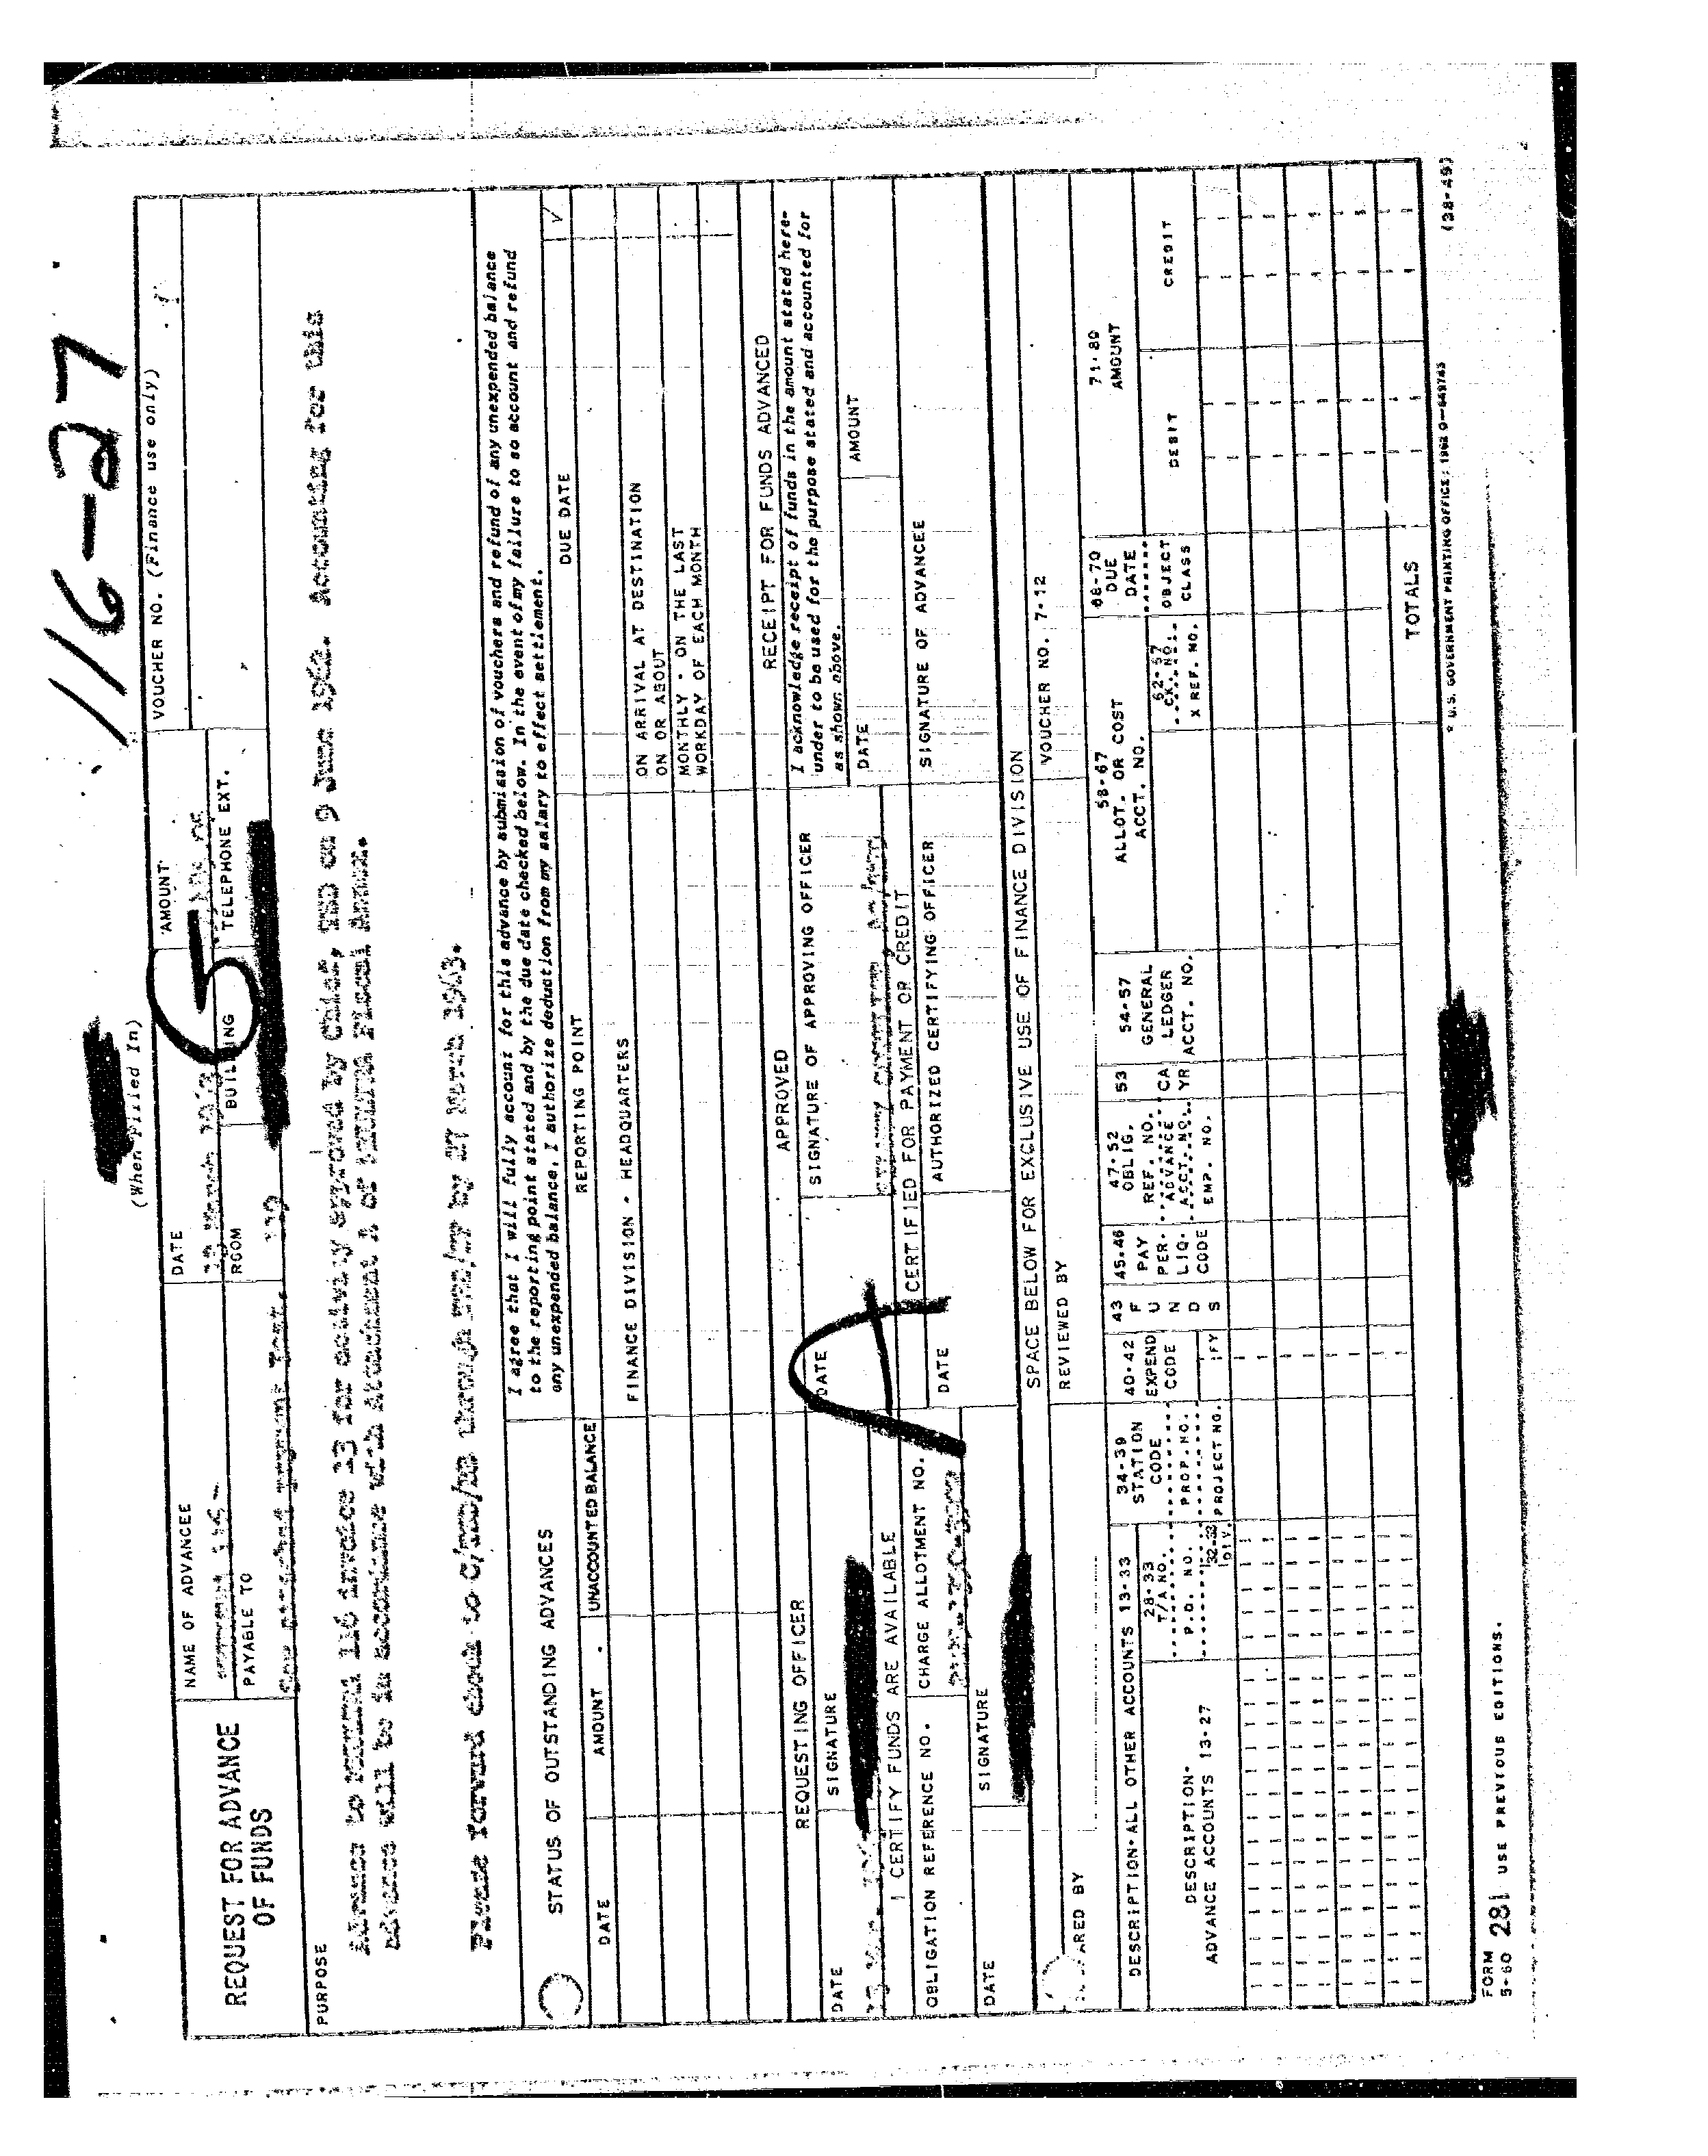 116-27
(When Filled In)
REQUEST FOR ADVANCE
OF FUNDS
NAME OF ADVANCEE
DATE
AMOUNT
VOUCHER NO. (Finance use only)
PAYABLE TO
ROOM
BUILDING
TELEPHONE EXT.
See attached payment Inst. 139
PURPOSE
Advance to MKULTRA 116 invoice 13 for activity approved by Chief, TSD on 9 June 1962. Accounting for this
advance will be in accordance with Attachment A of MKULTRA Fiscal Annex.
Please forward check to through by 27 March 1963.
STATUS OF OUTSTANDING ADVANCES
I agree that I will fully account for this advance by submission of vouchers and refund of any unexpended balance
to the reporting point stated and by the due date checked below. In the event of my failure to so account and refund
any unexpended balance, I authorize deduction from my salary to effect settlement.
DATE
AMOUNT
UNACCOUNTED BALANCE
REPORTING POINT
DUE DATE
FINANCE DIVISION - HEADQUARTERS
ON ARRIVAL AT DESTINATION
ON OR ABOUT
MONTHLY - ON THE LAST
WORKDAY OF EACH MONTH
REQUESTING OFFICER
APPROVED
RECEIPT FOR FUNDS ADVANCED
DATE
SIGNATURE
DATE
SIGNATURE OF APPROVING OFFICER
I acknowledge receipt of funds in the amount stated here-
under to be used for the purpose stated and accounted for
as shown above.
I CERTIFY FUNDS ARE AVAILABLE
CERTIFIED FOR PAYMENT OR CREDIT
DATE
AMOUNT
OBLIGATION REFERENCE NO.
CHARGE ALLOTMENT NO.
DATE
AUTHORIZED CERTIFYING OFFICER
SIGNATURE OF ADVANCEE
DATE
SIGNATURE
SPACE BELOW FOR EXCLUSIVE USE OF FINANCE DIVISION
ARED BY
REVIEWED BY
VOUCHER NO. 7-12
DESCRIPTION-ALL OTHER ACCOUNTS 13-33
DESCRIPTION-
ADVANCE ACCOUNTS 13-27
28-33
T/A NO.
P.O. NO.
32-33
DIV.
34-39
STATION
CODE
PROP. NO.
PROJECT NO.
40-42
EXPEND
CODE
FY
43
F
U
N
D
S
45-46
PAY
PER.
LIQ.
CODE
47-52
OBLIG.
REF. NO.
ADVANCE
ACCT. NO.
EMP. NO.
53
CA
YR
54-57
GENERAL
LEDGER
ACCT. NO.
58-67
ALLOT. OR COST
ACCT. NO.
62-67
CK. NO.
X REF. NO.
68-70
DUE
DATE
OBJECT
CLASS
71-80
AMOUNT
DEBIT
CREDIT
TOTALS
FORM
5-60 281 USE PREVIOUS EDITIONS.
* U.S. GOVERNMENT PRINTING OFFICE: 1962 O-648745
(28-49)